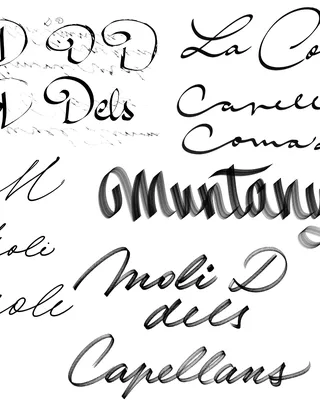 D D D
Dels
La Co
Capell
Coma
M
oli
Muntany
Moli D
dels
Capellans